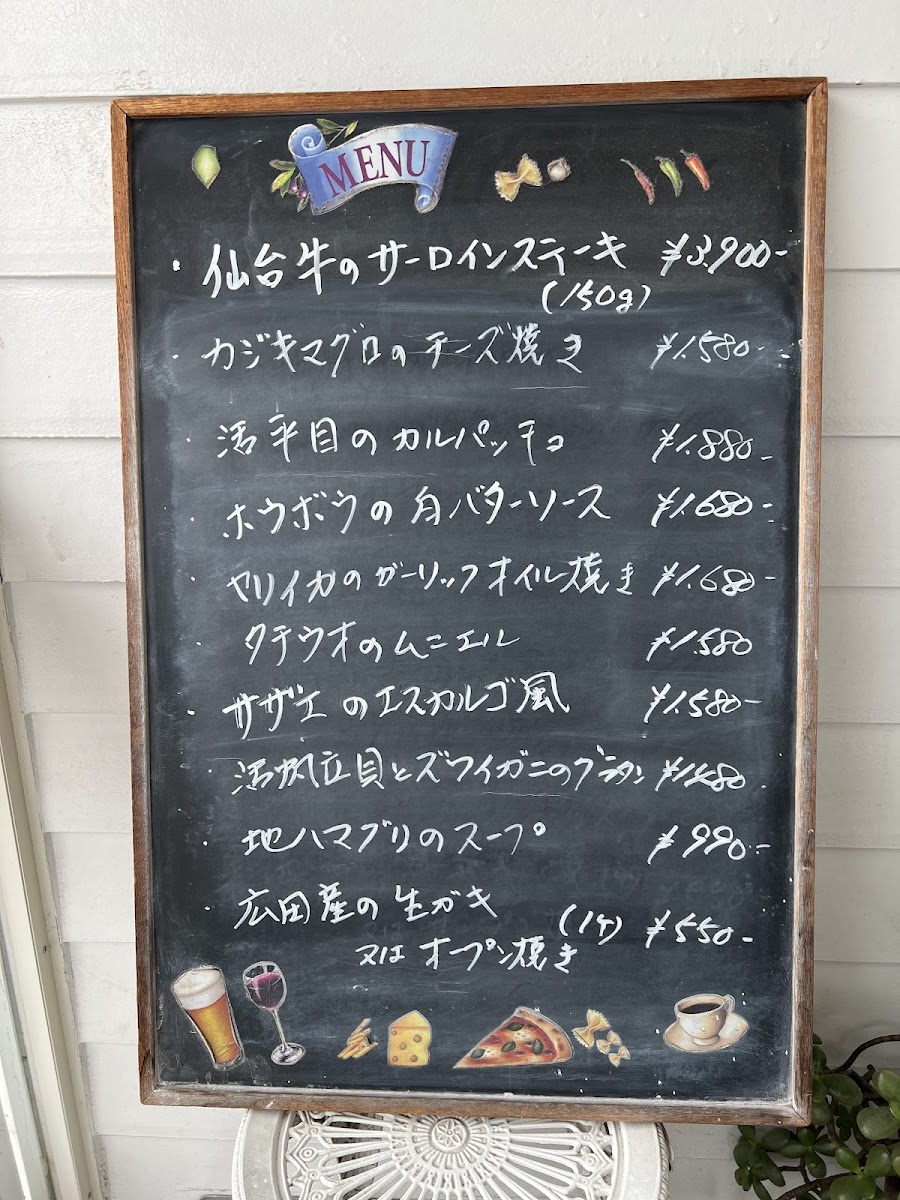 MENU
・仙台牛のサーロインステーキ ¥3,900-
(150g)
・カジキマグロのチーズ焼き ¥1,580-
・活平目のカルパッチョ ¥1,880-
・ホウボウの白バターソース ¥1,680-
・ヤリイカのガーリックオイル焼き ¥1,680-
・タチウオのムニエル ¥1,580
・サザエのエスカルゴ風 ¥1,580-
・活帆立貝とズワイガニのグラタン ¥1,480-
・地ハマグリのスープ ¥990-
・広田産の生ガキ (1ケ) ¥550-
又はオーブン焼き